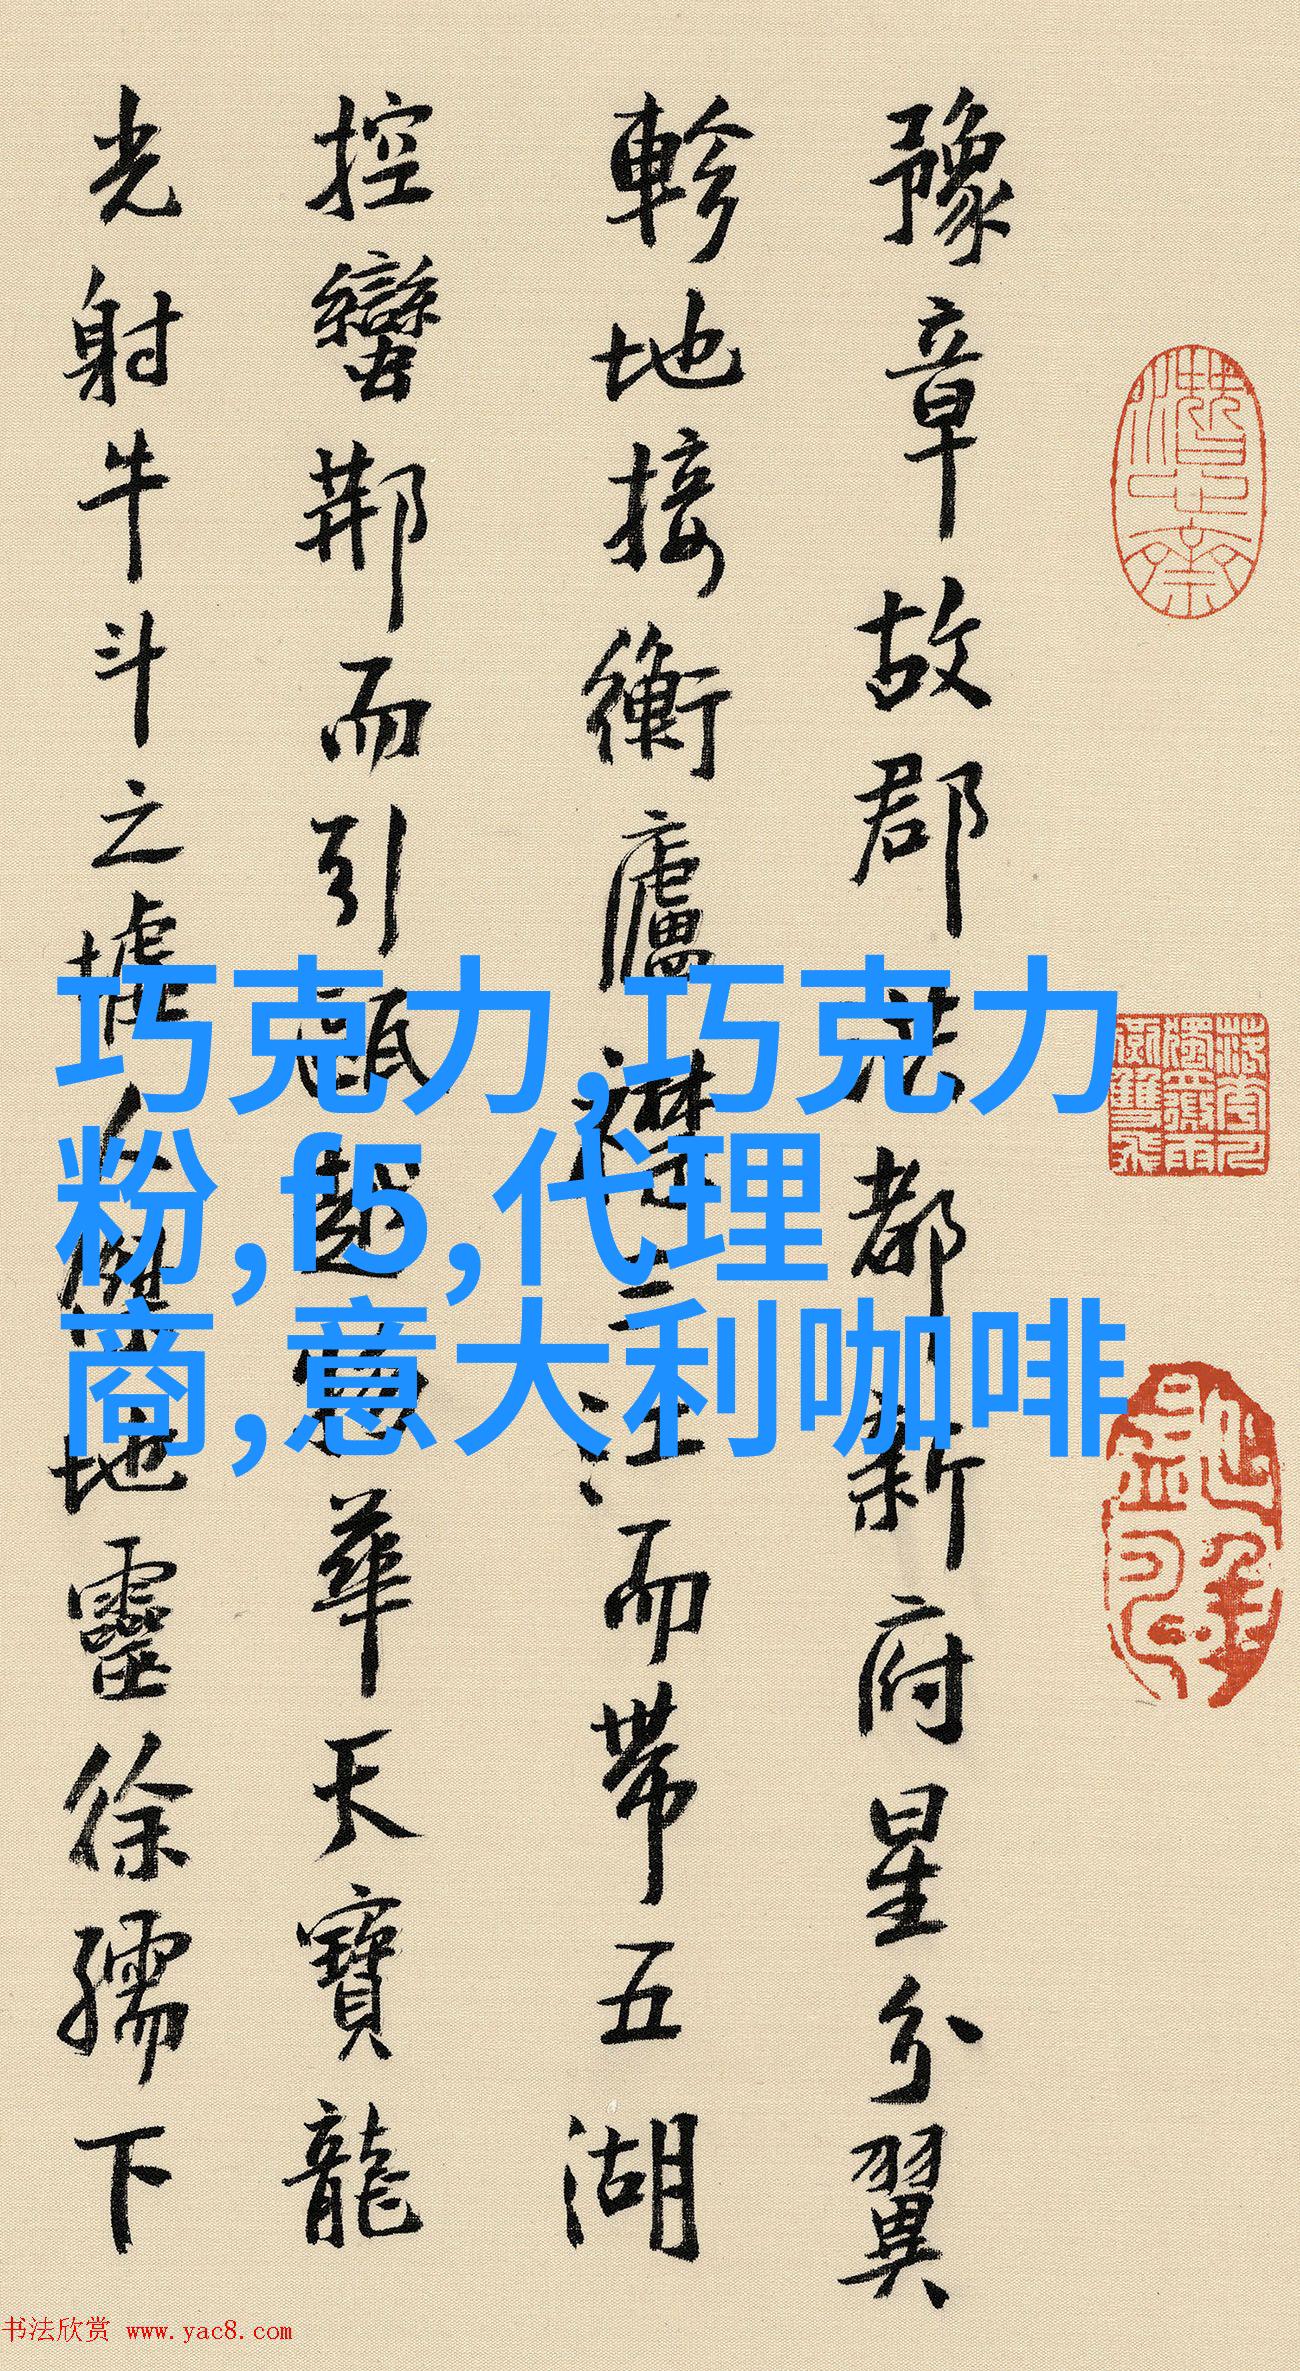 豫章故郡洪都新府星分翼
軫地接衡廬襟三江而帶五湖
控蠻荆而引甌越物華天寶龍
光射牛斗之墟人傑地靈徐孺下
巧克力,巧克力
粉,f5,代理
商,意大利咖啡
书法欣赏 www.yac8.com